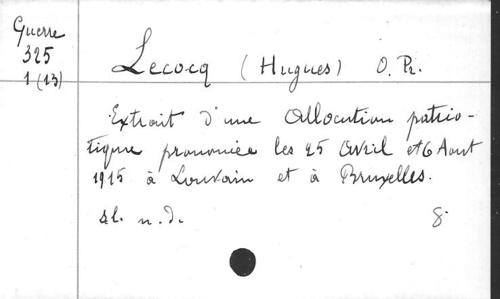 Guerre
325
1 (13)
Lecocq (Hugues) O. Pr.
Extrait d'une Allocution patrio-
tique prononcée les 25 Avril et 6 Aout
1915 à Louvain et à Bruxelles.
sl. n.d. 8°